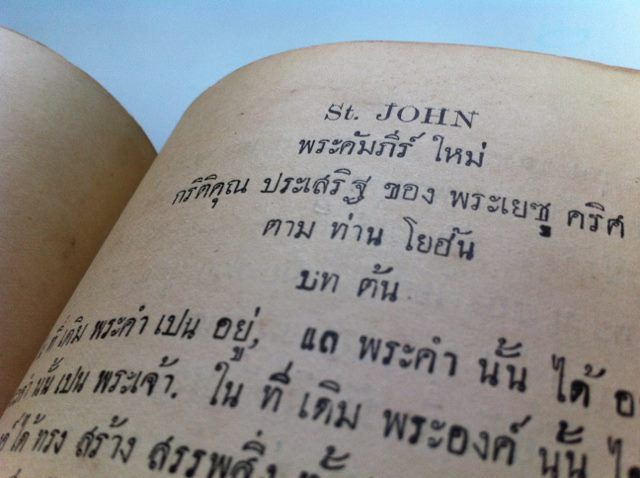 St. JOHN
พระคัมภีร์ ใหม่
กริติคุณ ประเสริฐ ของ พระเยซู คริศ
ตาม ท่าน โยฮัน
บท ต้น
ที่ เดิม พระคำ เปน อยู่, แล พระคำ นั้น ได้
นั้น เปน พระเจ้า. ใน ที่ เดิม พระองค์ นั้น
ได้ ทรง สร้าง สรรพสิ่ง